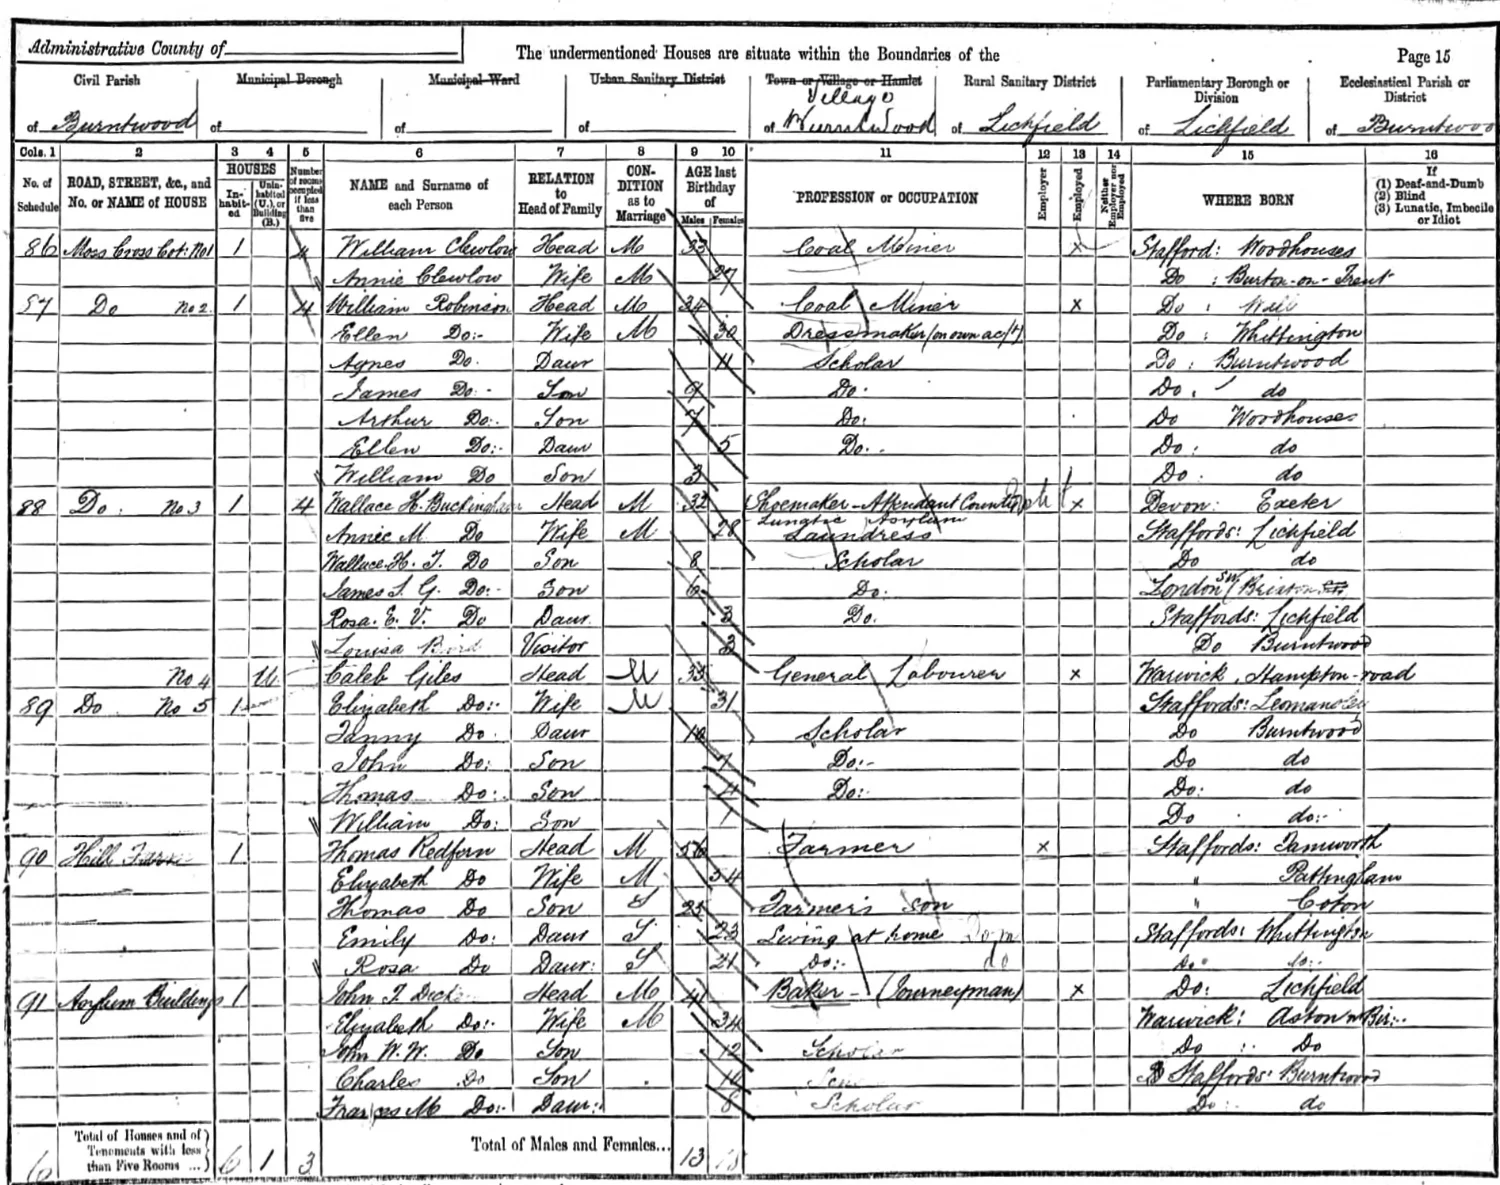 Administrative County of
The undermentioned Houses are situate within the Boundaries of the
Page 15
Civil Parish
Municipal Borough
Municipal Ward
Urban Sanitary District
Town or Village or Hamlet
Rural Sanitary District
Parliamentary Borough or Division
Ecclesiastical Parish or District
Village
of Burntwood of of of of Burntwood of Lichfield of Lichfield of Burntwood
Cols. 1 2 3 4 5 6 7 8 9 10 11 12 13 14 15 16
No. of Schedule
ROAD, STREET, &c., and No. or NAME of HOUSE
HOUSES
Inhabited
Uninhabited (U.), or Building (B.)
Number of rooms occupied if less than five
NAME and Surname of each Person
RELATION to Head of Family
CONDITION as to Marriage
AGE last Birthday of
Males Females
PROFESSION or OCCUPATION
Employer
Employed
Neither Employer nor Employed
WHERE BORN
If
(1) Deaf-and-Dumb
(2) Blind
(3) Lunatic, Imbecile or Idiot
86 Moss Cross Cot: No 1 1 4 William Clewlow Head M 33 Coal Miner x Stafford: Woodhouses
Annie Clewlow Wife M 27 Do : Burton-on-Trent
57 Do No 2 1 4 William Robinson Head M 34 Coal Miner x Do :
Ellen Do:- Wife M 30 Dressmaker (on own ac/t) Do : Whittington
Agnes Do. Daur 11 Scholar Do : Burntwood
James Do - Son 9 Do. Do . do
Arthur Do:- Son 7 Do: Do Woodhouses
Ellen Do:- Daur 5 Do. . Do : do
William Do Son 3 Do : do
88 Do : No 3 1 4 Wallace H. Buckingham Head M 32 Shoemaker - Attendant County x Devon: Exeter
Lunatic Asylum
Annie M. Do Wife M 28 Laundress Staffords: Lichfield
Wallace H. J. Do Son 8 Scholar Do do
James S. G. Do:- Son 6 Do: London SW (Brixton
Rosa. E. V. Do Daur. 3 Do. Staffords: Lichfield
Louisa Visitor 3 Do Burntwood
No 4 U Caleb Giles Head M 35 General Labourer x Warwick . Hampton-road
89 Do No 5 1 Elizabeth Do:- Wife M 31 Staffords: Leomansley
Fanny Do. Daur 10 Scholar Do Burntwood
John Do: Son 7 Do:- Do do
Thomas Do:. Son 4 Do:- Do: do
William Do: Son 1 Do do:-
90 Hill Farm 1 Thomas Redfern Head M 56 Farmer x Staffords: Tamworth
Elizabeth Do Wife M 54 " Pattingham
Thomas Do Son S 25 Farmer's son " Coton
Emily Do: Daur S 23 Living at home Staffords: Whittington
Rosa Do Daur: S 21 Do:- do Do do:-
91 Asylum Buildings 1 John T. Head M 41 Baker - (Journeyman) x Do: Lichfield
Elizabeth Do:- Wife M 34 Warwick: Aston
John W. W. Do Son 12 Scholar Do : Do
Charles Do Son 10 Staffords: Burntwood
Frances M Do:- Daur:- 8 Scholar Do : do
Total of Houses and of Tenements with less than Five Rooms ... 6 1 3 Total of Males and Females... 13 18